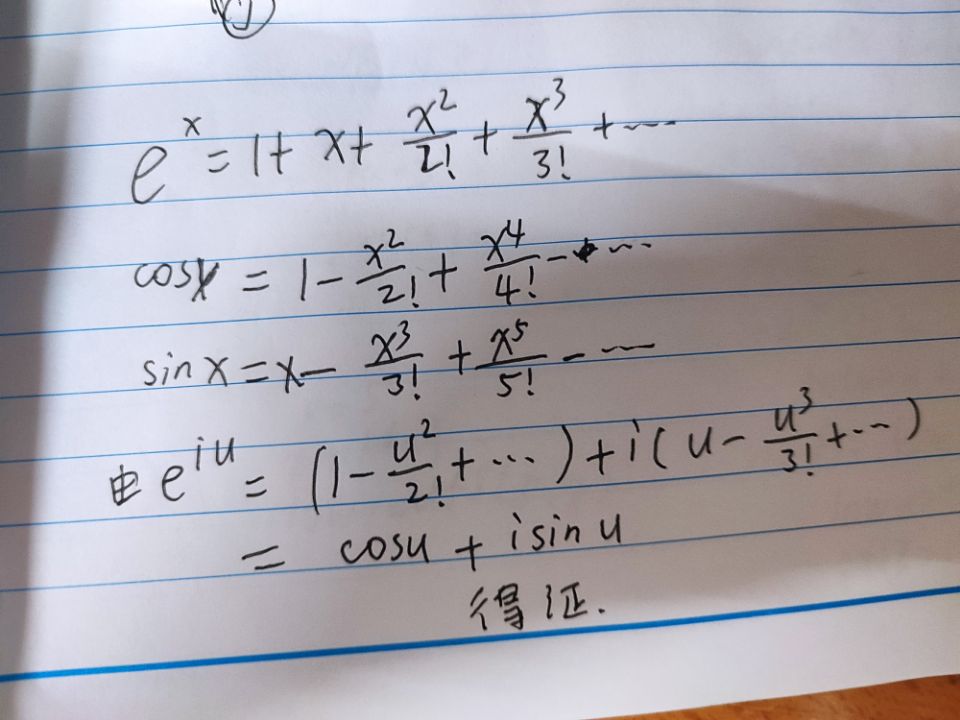 e^x = 1 + x + x²/2! + x³/3! + ⋯
cosx = 1 - x²/2! + x⁴/4! - ⋯
sinx = x - x³/3! + x⁵/5! - ⋯
由 e^{iu} = (1 - u²/2! + ⋯) + i(u - u³/3! + ⋯)
= cosu + i sin u
得证.